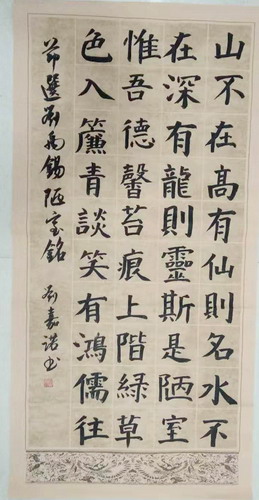 山不在高有仙則名水不
在深有龍則靈斯是陋室
惟吾德馨苔痕上階綠草
色入簾青談笑有鴻儒往
節選劉禹錫陋室銘 劉嘉諾书